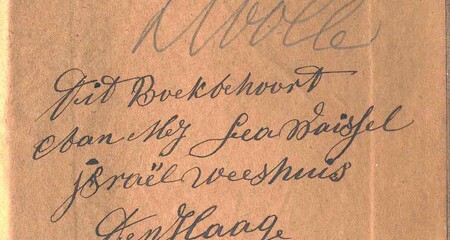 Zwolle
Dit Boek behoort
Aan Mej Lea Waissel
Israël weeshuis
Den Haage